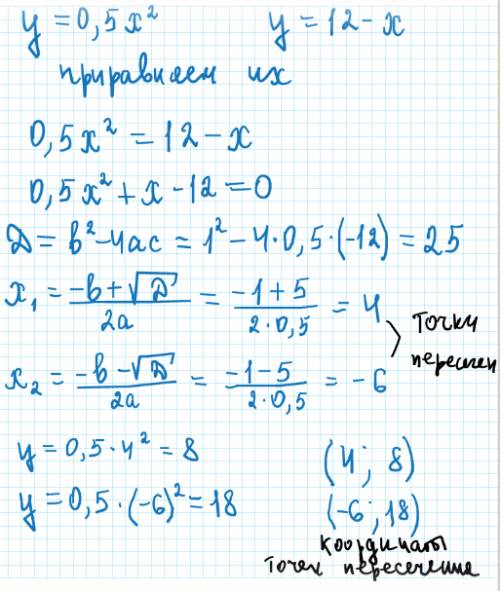 y = 0,5x² y = 12 - x
приравняем их
0,5x² = 12 - x
0,5x² + x - 12 = 0
D = b² - 4ac = 1² - 4·0,5·(-12) = 25
x₁ = (-b + √D)/2a = (-1 + 5)/(2·0,5) = 4
x₂ = (-b - √D)/2a = (-1 - 5)/(2·0,5) = -6
> точки
пересечен
y = 0,5·4² = 8 (4; 8)
y = 0,5·(-6)² = 18 (-6; 18)
координаты
точек пересечения